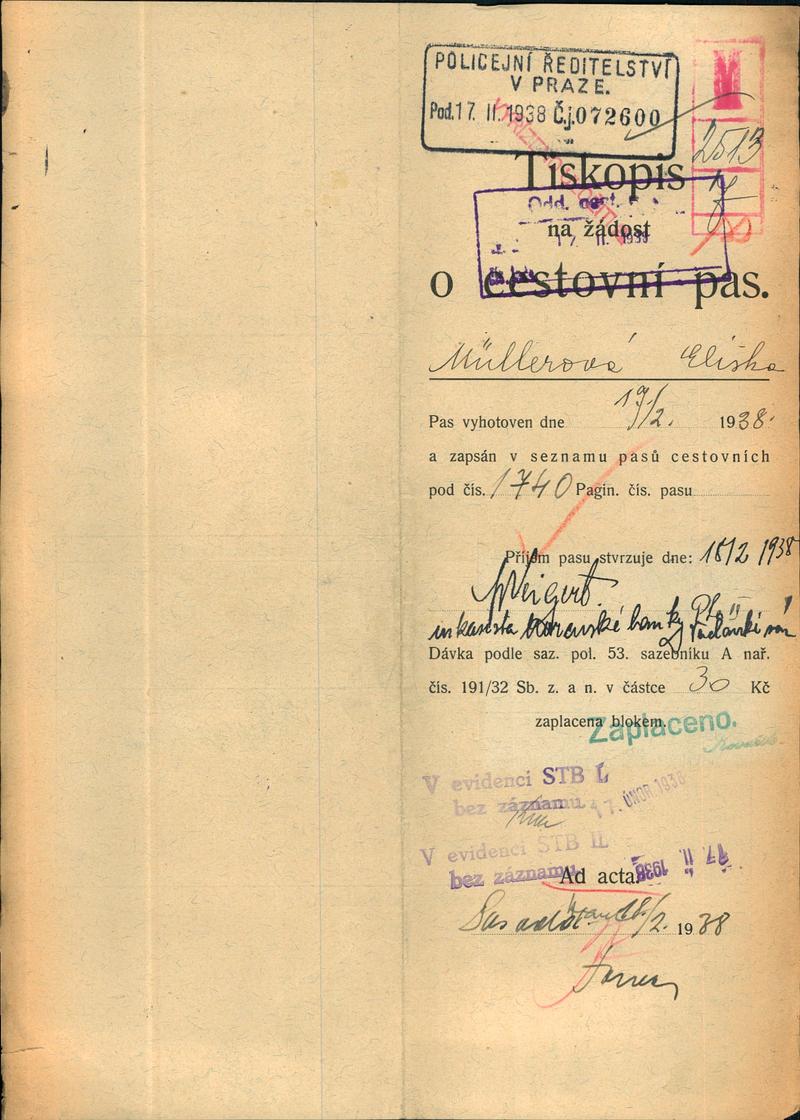 POLICEJNÍ ŘEDITELSTVÍ
V PRAZE.
Pod. 17. II. 1938 Č.j. 072600
2513
7
Tiskopis
Odd. cest.
na žádost
17. II. 1938
o cestovní pas.
Müllerová Eliška
Pas vyhotoven dne 19/2. 1938.
a zapsán v seznamu pasů cestovních
pod čís. 1740 Pagin. čís. pasu
Příjem pasu stvrzuje dne: 18/2 1938
Weigert.
inkasista Moravské banky
Dávka podle saz. pol. 53. sazebníku A nař.
čís. 191/32 Sb. z. a n. v částce 30 Kč
zaplacena blokem.
Zaplaceno.
V evidenci STB I.
bez záznamu. 17. ÚNOR. 1938
V evidenci STB II.
bez záznamu. 17 II 1938
Ad acta.
18/2. 1938